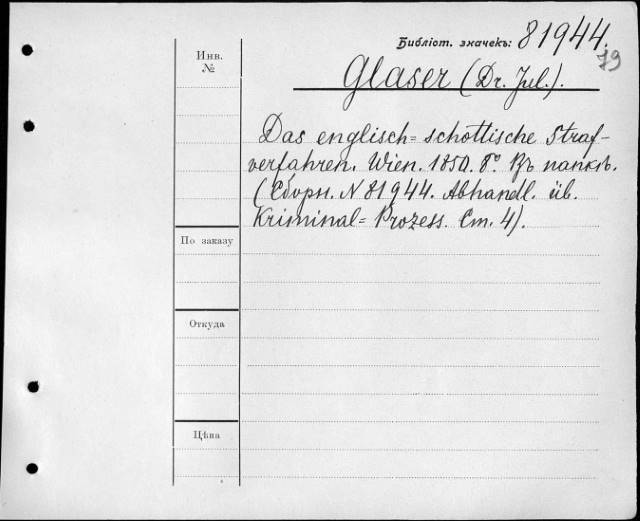 Библіот. значекъ: 81944.
79
Инв. №
Glaser (Dr. Jul.).
Das englisch= schottische Straf-
verfahren. Wien. 1850. 8º. Въ папкѣ.
(Сборн. N 81944. Abhandl. üb.
Kriminal= Prozess. Ст. 4).
По заказу
Откуда
Цѣна